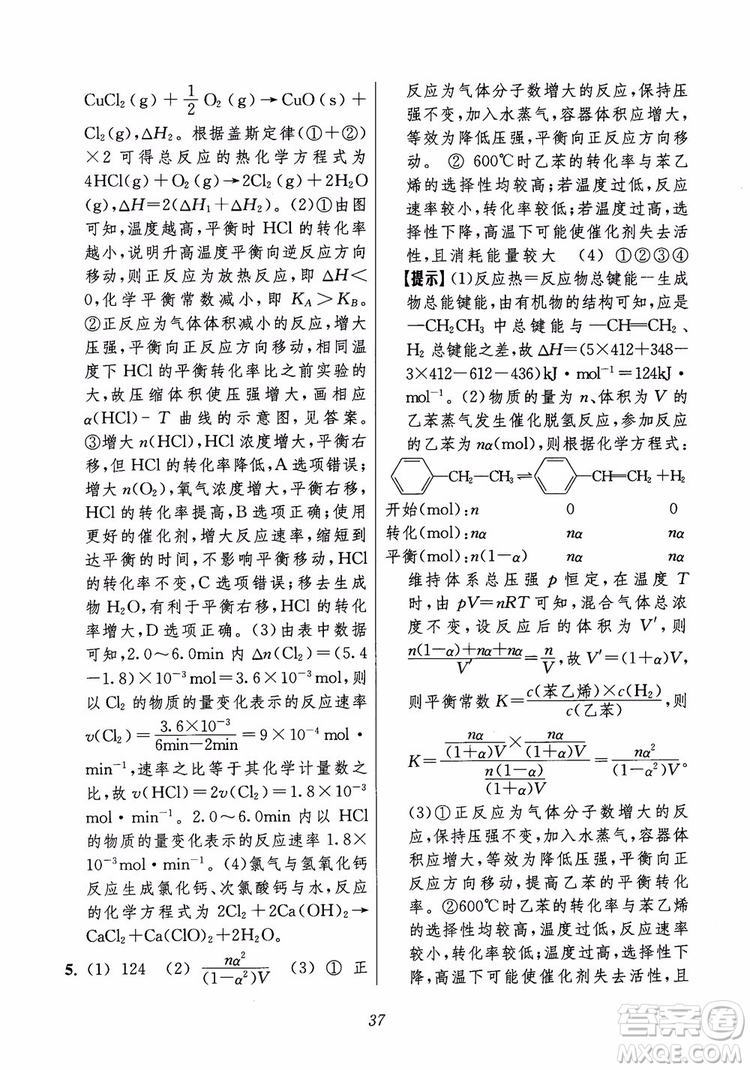 CuCl₂(g) + 1/2 O₂(g)→CuO(s) +
Cl₂(g),ΔH₂。根据盖斯定律(①+②)
×2 可得总反应的热化学方程式为
4HCl(g)+O₂(g)→2Cl₂(g)+2H₂O
(g),ΔH=2(ΔH₁+ΔH₂)。(2)①由图
可知,温度越高,平衡时 HCl 的转化率
越小,说明升高温度平衡向逆反应方向
移动,则正反应为放热反应,即 ΔH<
0,化学平衡常数减小,即 K_A>K_B。
②正反应为气体体积减小的反应,增大
压强,平衡向正反应方向移动,相同温
度下 HCl 的平衡转化率比之前实验的
大,故压缩体积使压强增大,画相应
α(HCl)- T 曲线的示意图,见答案。
③增大 n(HCl),HCl 浓度增大,平衡右
移,但 HCl 的转化率降低,A 选项错误;
增大 n(O₂),氧气浓度增大,平衡右移,
HCl 的转化率提高,B 选项正确;使用
更好的催化剂,增大反应速率,缩短到
达平衡的时间,不影响平衡移动,HCl
的转化率不变,C 选项错误;移去生成
物 H₂O,有利于平衡右移,HCl 的转化
率增大,D 选项正确。(3)由表中数据
可知,2.0~6.0min 内 Δn(Cl₂)=(5.4
-1.8)×10⁻³mol=3.6×10⁻³mol,则
以 Cl₂ 的物质的量变化表示的反应速率
v(Cl₂)=3.6×10⁻³/(6min-2min)=9×10⁻⁴mol·
min⁻¹,速率之比等于其化学计量数之
比,故 v(HCl)=2v(Cl₂)=1.8×10⁻³
mol·min⁻¹。2.0~6.0min 内以 HCl
的物质的量变化表示的反应速率 1.8×
10⁻³mol·min⁻¹。(4)氯气与氢氧化钙
反应生成氯化钙、次氯酸钙与水,反应
的化学方程式为 2Cl₂+2Ca(OH)₂→
CaCl₂+Ca(ClO)₂+2H₂O
5. (1) 124 (2) nα²/((1-α²)V) (3) ① 正
反应为气体分子数增大的反应,保持压
强不变,加入水蒸气,容器体积应增大,
等效为降低压强,平衡向正反应方向移
动。 ② 600℃时乙苯的转化率与苯乙
烯的选择性均较高;若温度过低,反应
速率较小,转化率较低;若温度过高,选
择性下降,高温下可能使催化剂失去活
性,且消耗能量较大 (4) ①②③④
【提示】(1)反应热=反应物总键能-生成
物总能键能,由有机物的结构可知,应是
—CH₂CH₃ 中总键能与 —CH═CH₂、
H₂ 总键能之差,故 ΔH=(5×412+348-
3×412-612-436)kJ·mol⁻¹=124kJ·
mol⁻¹。(2)物质的量为 n、体积为 V 的
乙苯蒸气发生催化脱氢反应,参加反应
的乙苯为 nα(mol),则根据化学方程式:
—CH₂—CH₃⇌—CH═CH₂+H₂
开始(mol):n 0 0
转化(mol):nα nα nα
平衡(mol):n(1-α) nα nα
维持体系总压强 p 恒定,在温度 T
时,由 pV=nRT 可知,混合气体总浓
度不变,设反应后的体积为 V′,则
(n(1-α)+nα+nα)/V′=n/V,故 V′=(1+α)V,
则平衡常数 K=c(苯乙烯)×c(H₂)/c(乙苯),则
K=(nα/((1+α)V)×nα/((1+α)V))/(n(1-α)/((1+α)V))=nα²/((1-α²)V)
(3)①正反应为气体分子数增大的反
应,保持压强不变,加入水蒸气,容器体
积应增大,等效为降低压强,平衡向正
反应方向移动,提高乙苯的平衡转化
率。②600℃时乙苯的转化率与苯乙烯
的选择性均较高;若温度过低,反应速
率较小,转化率较低;若温度过高,选择
性下降,高温下可能使催化剂失去活性,且
37
答案圈
MXQE.COM